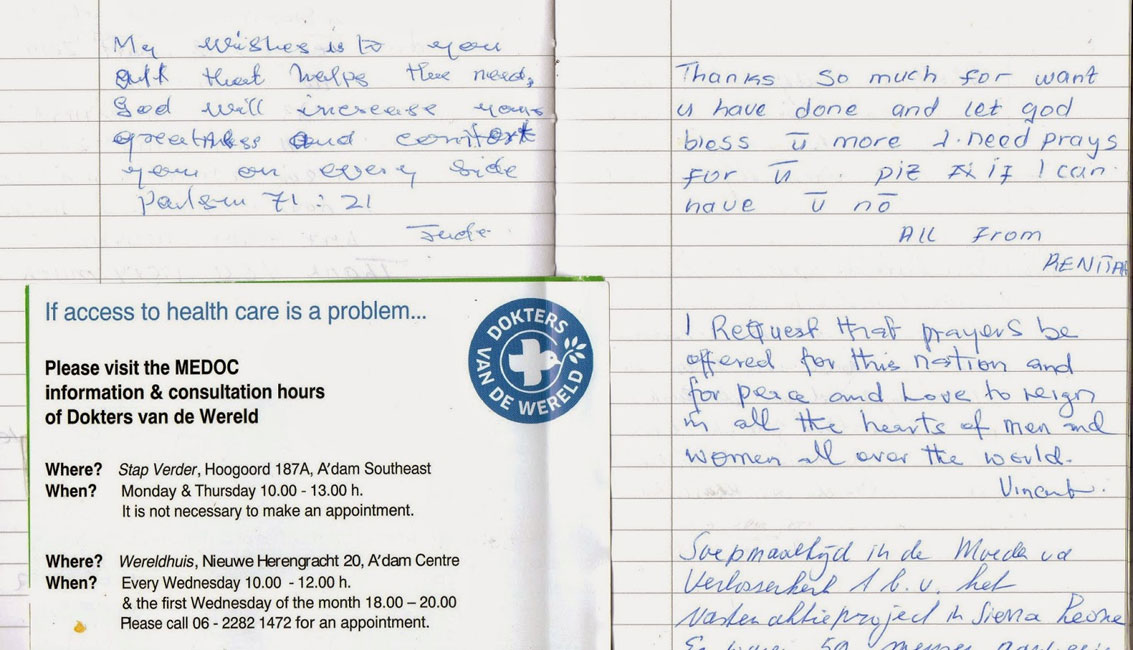 My wishes is to you
gift that helps the need,
God will increase your
greatness and comfort
you on every side
Parlsm 71 : 21
Jude
If access to health care is a problem...
DOKTERS VAN DE WERELD
Please visit the MEDOC
information & consultation hours
of Dokters van de Wereld
Where? Stap Verder, Hoogoord 187A, A'dam Southeast
When? Monday & Thursday 10.00 - 13.00 h.
It is not necessary to make an appointment.
Where? Wereldhuis, Nieuwe Herengracht 20, A'dam Centre
When? Every Wednesday 10.00 - 12.00 h.
& the first Wednesday of the month 18.00 – 20.00
Please call 06 - 2282 1472 for an appointment.
Thanks so much for want
u have done and let god
bless u more I need prays
for u . plz if I can
have u no
All From
RENITA
I Request that prayers be
offered for this nation and
for peace and Love to reign
in all the hearts of men and
women all over the world.
Vincent.
Soepmaaltijd in de Moeder vd
Verlosserkerk 1 b.v. het
Vastenaktieproject in Sierra Leone